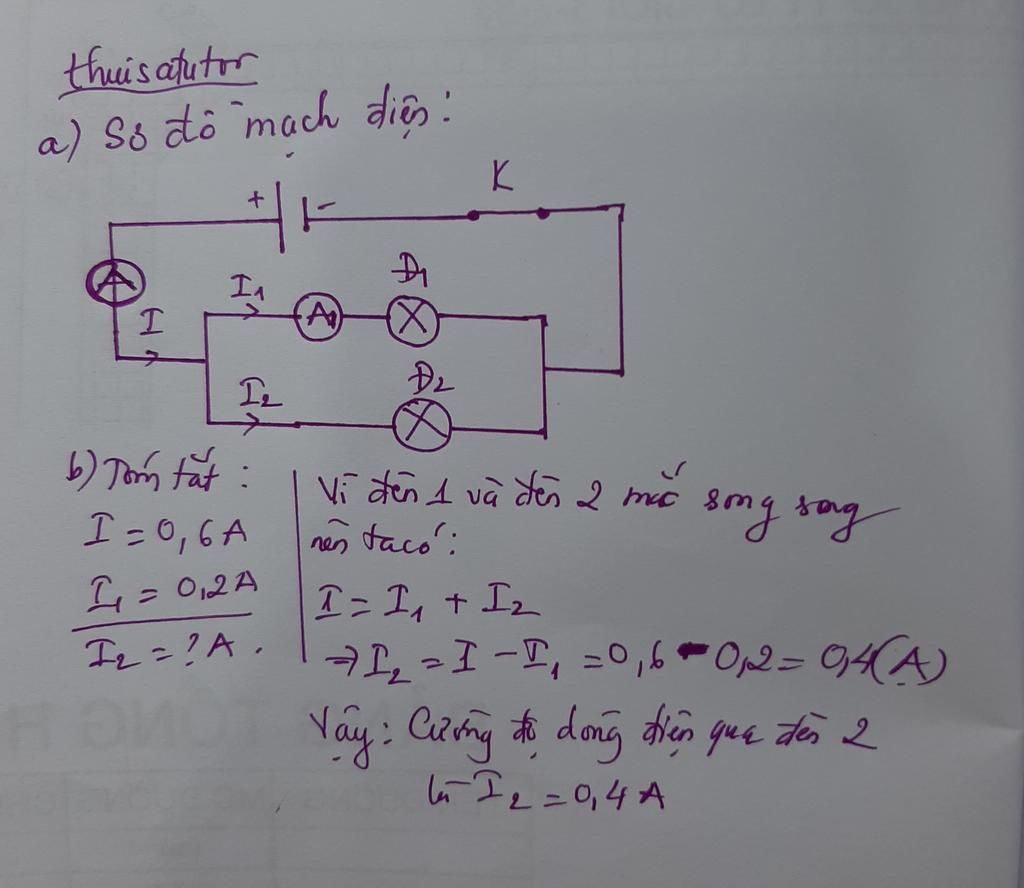 thuisatutor
a) Sơ đồ mạch điện:
K
+ -
A
I₁
A₁
Đ₁
I
I₂
Đ₂
b) Tóm tắt:
I = 0,6A
I₁ = 0,2A
I₂ = ? A.
Vì đèn 1 và đèn 2 mắc song song
nên ta có:
I = I₁ + I₂
⇒ I₂ = I - I₁ = 0,6 - 0,2 = 0,4(A)
Vậy: Cường độ dòng điện qua đèn 2
là I₂ = 0,4A